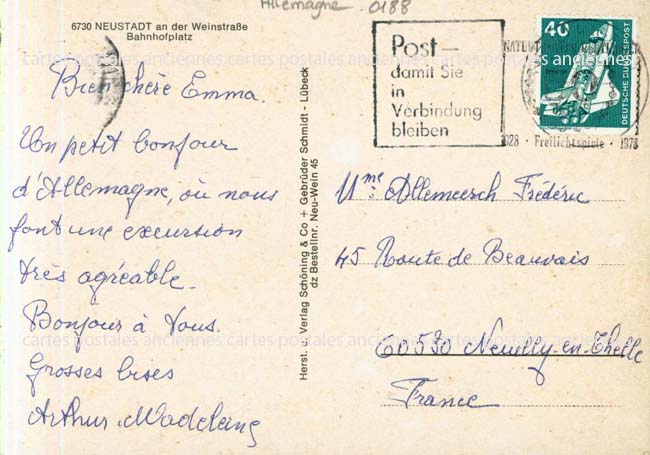 Allemagne. 0188
6730 NEUSTADT an der Weinstraße
Bahnhofplatz
Bien chère Emma.
Un petit bonjour
d'Allemagne, où nous
font une excursion
très agréable.
Bonjour à tous.
Grosses bises
Arthur Madeleine
Herst. u. Verlag Schöning & Co + Gebrüder Schmidt - Lübeck
dz Bestellnr. Neu-Wein 45
Post –
damit Sie
in
Verbindung
bleiben
40
DEUTSCHE BUNDESPOST
1928 · Freilichtspiele · 1978
Mme Allemeersch Frédéric
45 Route de Beauvais
60530 Neuilly-en-Thelle
France
cartes postales anciennes cartes postales anciennes cartes postales
cartes postales anciennes cartes postales anciennes cartes postales